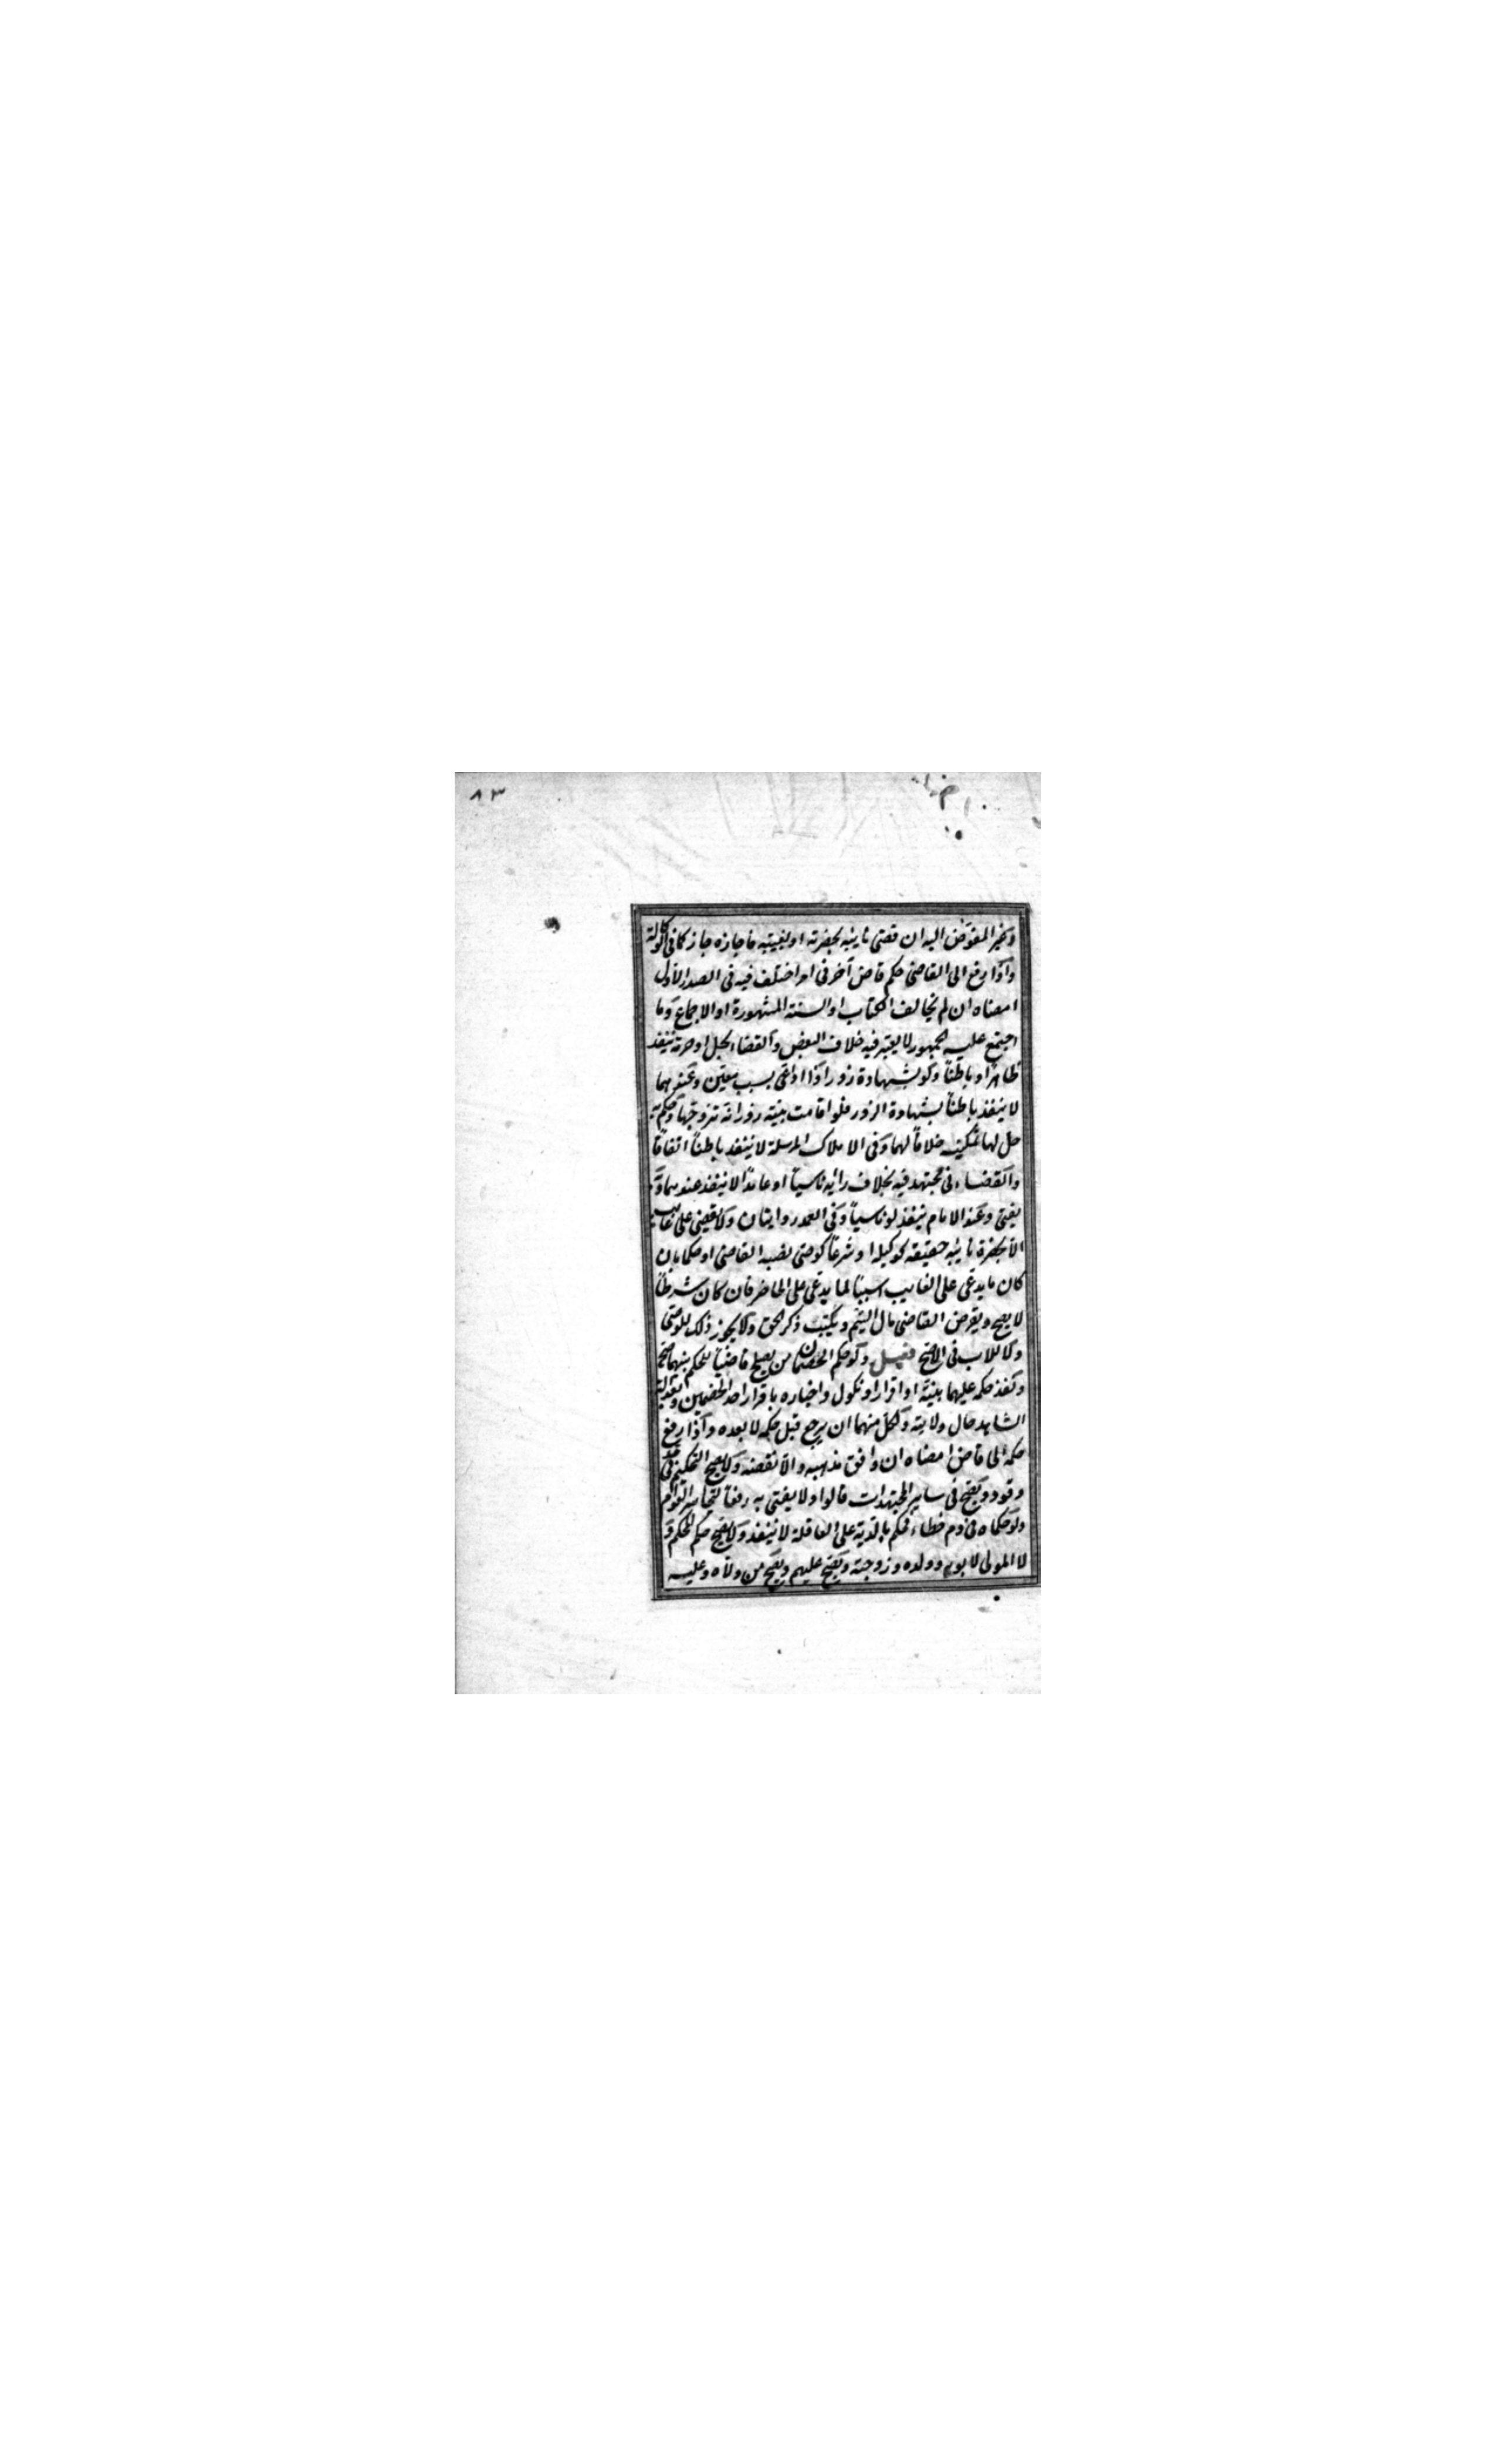 ٨٣
وغير المفوّض اليه ان قضى نايبه بحضرته او بغيبته فاجازه جاز كما فى الوكالة
واذا رفع الى القاضى حكم قاض آخر فى امر اختلف فيه فى الصدر الاول
امضاه ان لم يخالف الكتاب او السنة المشهورة او الاجماع وما
اجتمع عليه الجمهور لا يعتبر فيه خلاف البعض والقضاء بحل او حرمة ينفذ
ظاهرًا وباطنًا ولو بشهادة زور اذا ادّعى بسبب معيّن وعندهما
لا ينفذ باطنًا بشهادة الزور فلو اقامت بينة زور انه تزوجها وحكم به
حل لها تمكينه خلافًا لهما وفى الاملاك المرسلة لا ينفذ باطنًا اتفاقًا
والقضاء فى مجتهد فيه بخلاف رأيه ناسيًا او عامدًا لا ينفذ عندهما وبه
يفتى وعند الامام ينفذ لو ناسيًا وفى العمد روايتان ولا يقضى على غايب
الا بحضرة نايبه حقيقة كوكيله او شرعًا كوصى نصبه القاضى او حكما بان
كان ما يدعى على الغايب سببًا لما يدعى على الحاضر فان كان شرطًا
لا يصح ويقرض القاضى مال اليتيم ويكتب ذكر الحق ولا يجوز ذلك للوصى
ولا للاب فى الاصح فصل ولو حكم الخصمان من يصلح قاضيًا ليحكم بينهما صح
ونفذ حكمه عليهما ببينة او اقرار او نكول واخباره باقرار احد الخصمين وبعدالة
الشاهد حال ولايته ولكل منهما ان يرجع قبل حكمه لا بعده واذا رفع
حكمه الى قاض امضاه ان وافق مذهبه والا نقضه ولا يصح التحكيم فى حد
وقود ويصح فى ساير المجتهدات قالوا ولا يفتى به دفعًا لتجاسر العوام
ولو حكماه فى دم خطاء فحكم بالدية على العاقلة لا ينفذ ولا يصح حكم المحكم و
لا المولى لابويه وولده وزوجته ويصح عليهم ويصح من ولاه وعليه